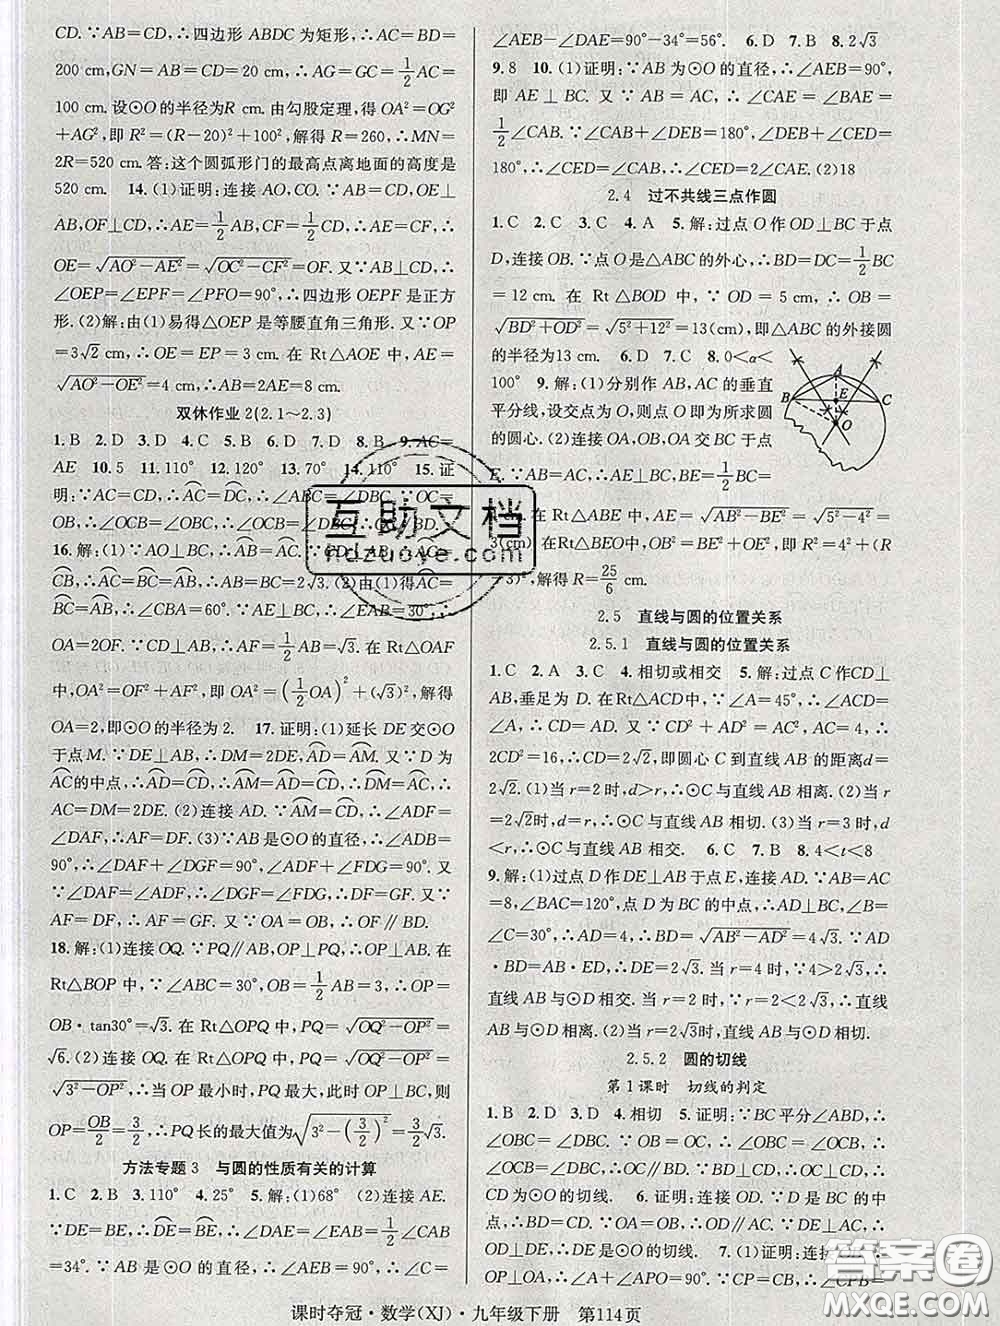 CD. ∵AB=CD,∴四边形 ABDC 为矩形,∴AC=BD=
200 cm,GN=AB=CD=20 cm,∴AG=GC=1/2AC=
100 cm. 设⊙O的半径为R cm. 由勾股定理,得 OA²=OG²
+AG²,即 R²=(R-20)²+100²,解得 R=260,∴MN=
2R=520 cm. 答:这个圆弧形门的最高点离地面的高度是
520 cm. 14. (1)证明:连接 AO,CO. ∵AB=CD,OE⊥
AB,OF⊥CD,∴AE=1/2AB,CF=1/2CD,∴AE=CF,∴
OE=√(AO²-AE²)=√(OC²-CF²)=OF. 又∵AB⊥CD,∴
∠OEP=∠EPF=∠PFO=90°,∴四边形 OEPF 是正方
形. (2)解:由(1)易得△OEP 是等腰直角三角形. 又∵OP
=3√2 cm,∴OE=EP=3 cm. 在 Rt△AOE 中,AE=
√(AO²-OE²)=4 cm,∴AB=2AE=8 cm.
双休作业 2(2.1~2.3)
1. B 2. D 3. D 4. C 5. B 6. D 7. D 8. B 9. AC=
AE 10. 5 11. 110° 12. 120° 13. 70° 14. 110° 15. 证
明:∵AC=CD,∴AC=DC,∴∠ABC=∠DBC. ∵OC=
OB,∴∠OCB=∠OBC,∴∠OCB=∠DBC,∴OC∥BD.
16. 解:(1)∵AO⊥BC,∴AC=AB. ∵CD⊥AB,∴AC=
CB,∴AC=BC=AB,∴∠B=60°. (2)由(1)得AC=
BC=AB,∴∠CBA=60°,∴∠EAB=30°,∴
OA=2OF. ∵OF⊥AB,∴AF=1/2AB=√3. 在 Rt△OAF
中,OA²=OF²+AF²,即 OA²=(1/2OA)²+(√3)²,解得
OA=2,即⊙O的半径为 2. 17. 证明:(1)延长 DE 交⊙O
于点 M. ∵DE⊥AB,∴DM=2DE,AD=AM. 又∵D为
AC的中点,∴AD=CD,∴AM=AD=CD,∴AC=DM,∴
AC=DM=2DE. (2)连接 AD. ∵AM=CD,∴∠ADF=
∠DAF,∴AF=DF. (3)∵AB 是⊙O 的直径,∴∠ADB=
90°,∴∠DAF+∠DGF=90°,∠ADF+∠FDG=90°. 又∵
∠DAF=∠ADF,∴∠DGF=∠FDG,∴DF=GF. 又∵
AF=DF,∴AF=GF. 又∵OA=OB,∴OF∥BD.
18. 解:(1)连接 OQ. ∵PQ∥AB,OP⊥PQ,∴OP⊥AB. 在
Rt△BOP 中,∵∠ABC=30°,OB=1/2AB=3,∴OP=
OB·tan30°=√3. 在 Rt△OPQ 中,PQ=√(OQ²-OP²)=
√6. (2)连接 OQ. 在 Rt△OPQ 中,PQ=√(OQ²-OP²)
=√(3²-OP²),∴当 OP 最小时,PQ 最大,此时 OP⊥BC,则
OP=OB/2=3/2,∴PQ长的最大值为√(3²-(3/2)²)=3/2√3.
方法专题 3 与圆的性质有关的计算
1. C 2. B 3. 110° 4. 25° 5. 解:(1)68° (2)连接 AE.
∵DE=BE,∴DE=BE,∴∠DAE=∠EAB=1/2∠CAB
=34°. ∵AB是⊙O的直径,∴∠AEB=90°,∴∠C=
∠AEB-∠DAE=90°-34°=56°. 6. D 7. B 8. 2√3
9. 8 10. (1)证明:∵AB 为⊙O 的直径,∴∠AEB=90°,
即 AE⊥BC. 又∵AB=AC,∴∠CAE=∠BAE=
1/2∠CAB. ∵∠CAB+∠DEB=180°,∠DEB+∠CED=
180°,∴∠CED=∠CAB,∴∠CED=2∠CAE. (2)18
2.4 过不共线三点作圆
1. C 2. C 3. C 4. A 5. 解:过点 O 作 OD⊥BC 于点
D,连接 OB. ∵点 O 是△ABC 的外心,∴BD=DC=1/2BC
=12 cm. 在 Rt△BOD 中,∵OD=5 cm,∴OB=
√(BD²+OD²)=√(5²+12²)=13(cm),即△ABC 的外接圆
的半径为13 cm. 6. D 7. C 8. 0<α<
100° 9. 解:(1)分别作 AB,AC 的垂直
平分线,设交点为 O,则点 O 即为所求圆
的圆心. (2)连接 OA,OB,OA 交 BC 于点
E. ∵AB=AC,∴AE⊥BC,BE=1/2BC=
在 Rt△ABE 中,AE=√(AB²-BE²)=√(5²-4²)=
3(cm). 在 Rt△BEO中,OB²=BE²+OE²,即 R²=4²+(R
-3)²,解得 R=25/6 cm.
A
B
E
C
O
2.5 直线与圆的位置关系
2.5.1 直线与圆的位置关系
1. C 2. A 3. C 4. 相切或相交 5. 解:过点 C 作CD⊥
AB,垂足为 D. 在 Rt△ACD 中,∵∠A=45°,∴∠ACD=
∠A,∴CD=AD. 又∵CD²+AD²=AC²,AC=4,∴
2CD²=16,∴CD=2√2,即圆心 C 到直线 AB 的距离d=
2√2. (1)当 r=2 时,d>r,∴⊙C 与直线 AB 相离. (2)当 r
=2√2时,d=r,∴⊙C 与直线 AB 相切. (3)当 r=3 时,
d<r,∴⊙C 与直线 AB 相交. 6. C 7. B 8. 4<t<8
9. 解:(1)过点 D 作 DE⊥AB 于点 E,连接 AD. ∵AB=AC
=8,∠BAC=120°,点 D 为 BC 的中点,∴AD⊥BC,∠B=
∠C=30°,∴AD=4,∴BD=√(AB²-AD²)=4√3. ∵AD
·BD=AB·ED,∴DE=2√3. 当 r=4 时,∵4>2√3,∴
直线 AB 与⊙D 相交. 当 r=2 时,∵r=2<2√3,∴直线
AB 与⊙D 相离. (2)当 r=2√3时,直线 AB 与⊙D 相切.
2.5.2 圆的切线
第 1 课时 切线的判定
1. B 2. D 3. D 4. 相切 5. 证明:∵BC平分∠ABD,∴
∠OBC=∠DBC. ∵OB=OC,∴∠OBC=∠OCB,∴
∠OCB=∠DBC,∴OC∥BD. ∵BD⊥CD,∴OC⊥CD,∴
CD为⊙O 的切线. 6. 证明:连接 OD. ∵D 是 BC 的中
点,∴BD=CD. ∵OA=OB,∴OD∥AC. ∵DE⊥AC,∴
OD⊥DE,∴DE是⊙O的切线. 7. (1)证明:连接
课时夺冠·数学(XJ)·九年级下册 第114页
互助文档
hdzuoye.com
答案圈
MXQE.COM